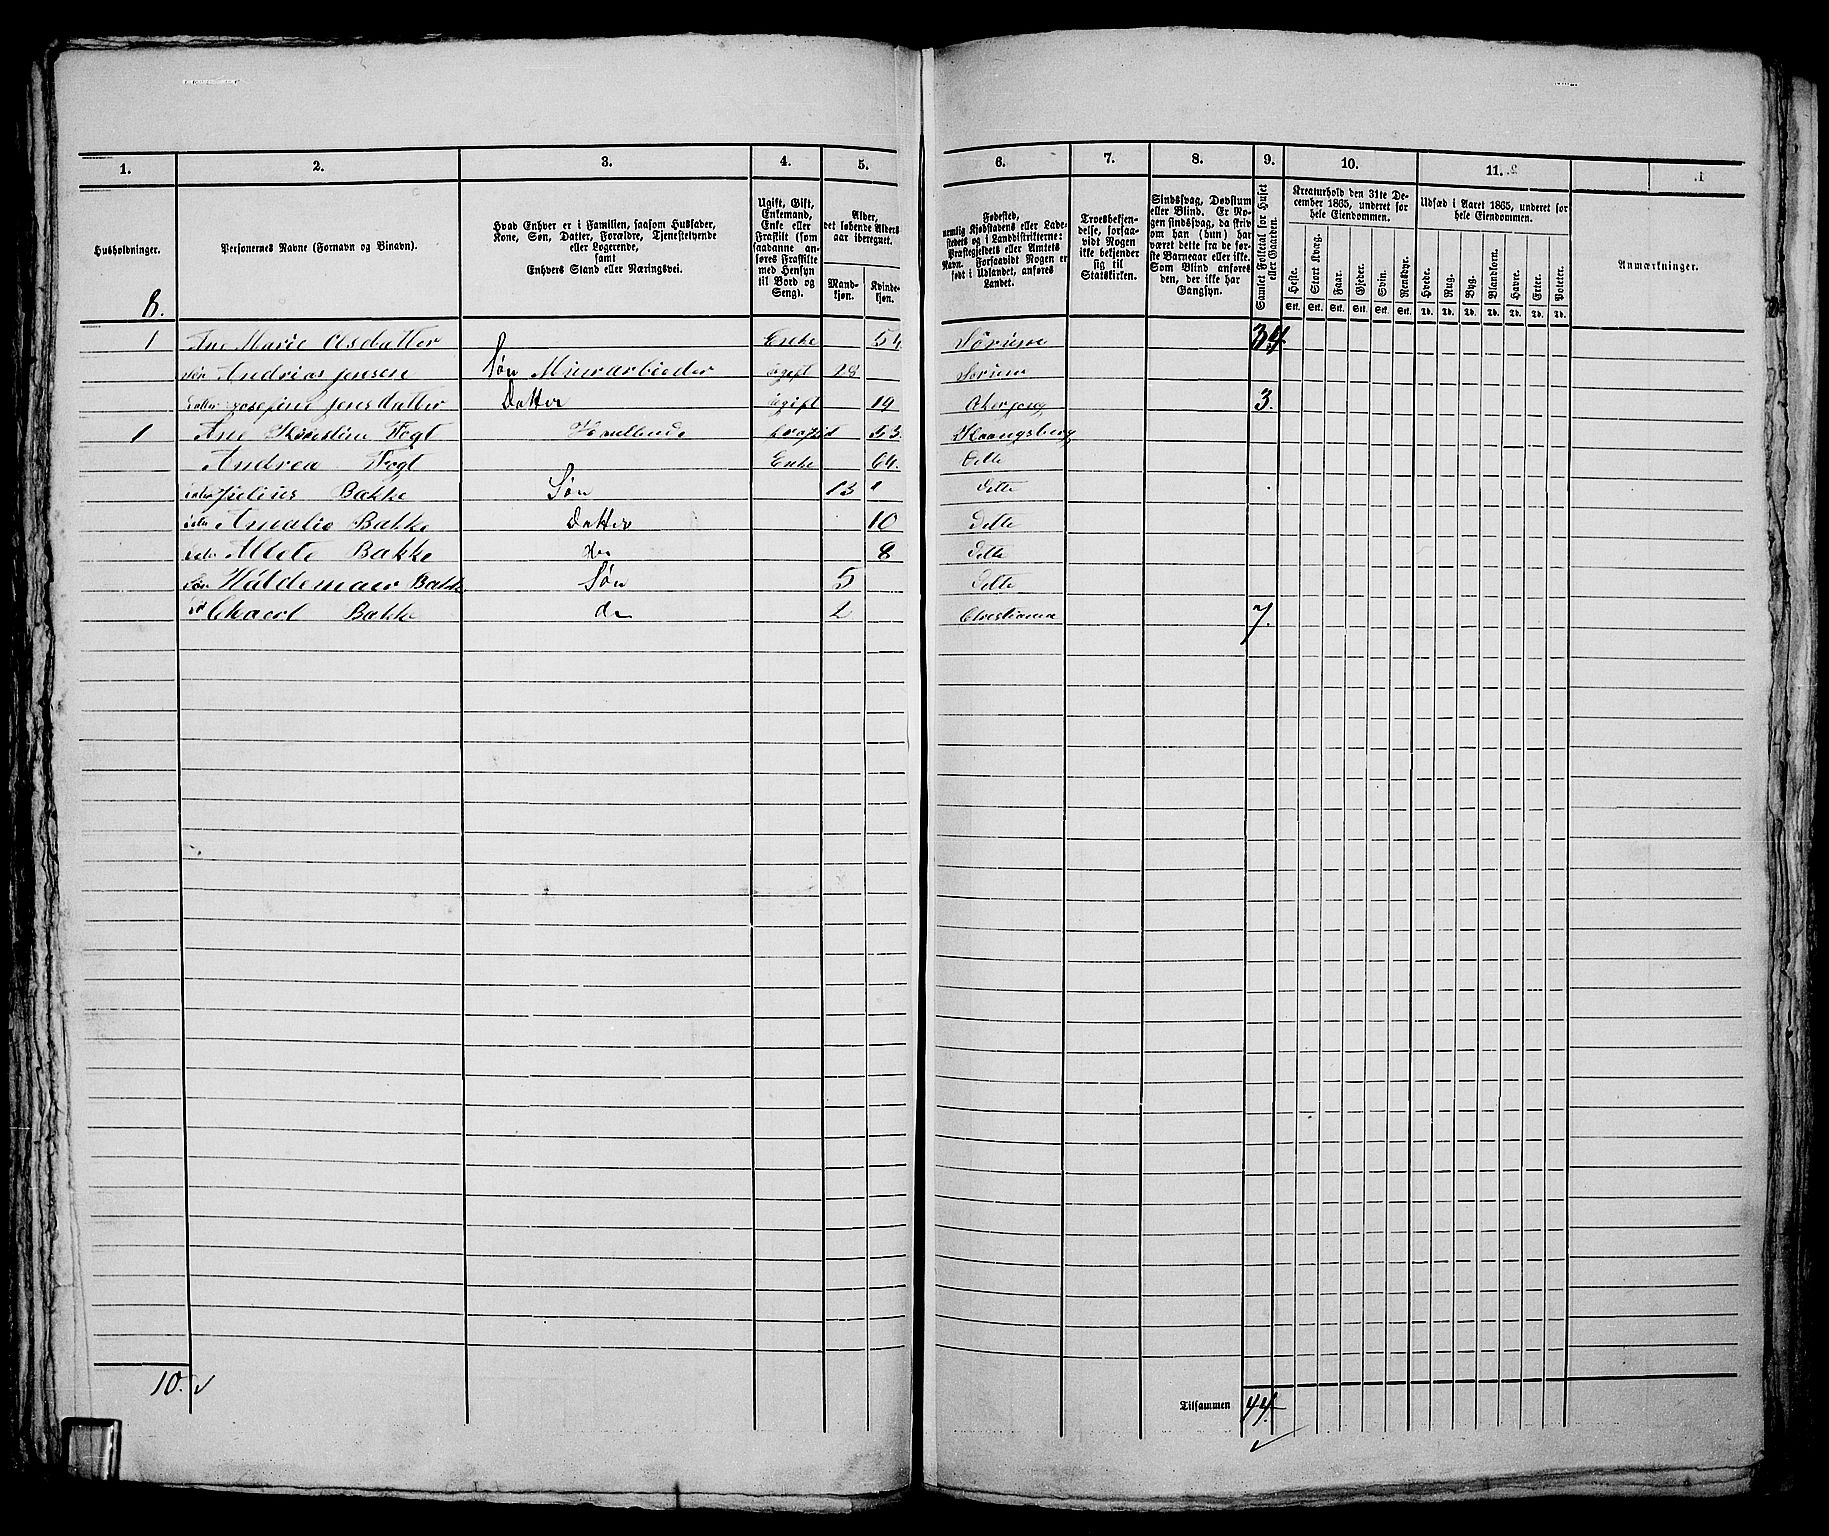 1. 2. 3. 4. 5. 6. 7. 8. 9. 10. 11.
Husholdninger.
Personernes Navne (Fornavn og Binavn).
Hvad Enhver er i Familien, saasom Husfader,
Kone, Søn, Datter, Forældre, Tjenestetyende
eller Logerende,
samt
Enhvers Stand eller Næringsvei.
Ugift, Gift,
Enkemand,
Enke eller
Fraskilt (som
saadanne an-
føres Fraskilte
med Hensyn
til Bord og
Seng).
Alder,
det løbende Alders-
aar iberegnet.
Mand-
kjøn.
Kvinde-
kjøn.
Fødested,
nemlig Kjøbstadens eller Lade-
stedets og i Landdistrikterne:
Præstegjeldets eller Amtets
Navn. Forsaavidt Nogen er
født i Udlandet, anføres
Landet.
Troesbekjen-
delse, forsaa-
vidt Nogen
ikke bekjender
sig til
Statskirken.
Sindssvag, Døvstum
eller Blind. Er No-
gen sindssvag, da skriv
om han (hun) har
været dette fra de før-
ste Barneaar eller ikke.
Som Blind anføres
den, der ikke har
Gangsyn.
Samlet Folketal for Huset
eller Gaarden.
Kreaturhold den 31te De-
cember 1865, underet for
hele Eiendommen.
Heste. Stort Kvæg. Faar. Gjeder. Svin. Rensdyr.
Stk. Stk. Stk. Stk. Stk. Stk.
Udsæd i Aaret 1865, underet for
hele Eiendommen.
Hvede. Rug. Byg. Blandkorn. Havre. Erter. Poteter.
Td. Td. Td. Td. Td. Td. Td.
Anmærkninger.
8.
1 Ane Marie Olsdatter Enke 54 Sørum 34
Søn Andrias Jensen Søn Murarbieder ugift 18 Sørum
Josefine Jensdatter Datter ugift 19 3.
1 Ane Fogt 53. Kongsberg
Andrea Fogt Enke 64. Dette
Julius Bakke Søn 13 Dette
Amalie Bakke Datter 10 Dette
Bakke 8 Dette
Søn Valdemar Bakke Søn 5 Dette
Bakke do 2 Christiania 7.
10. ✓
Tilsammen 44.
✓